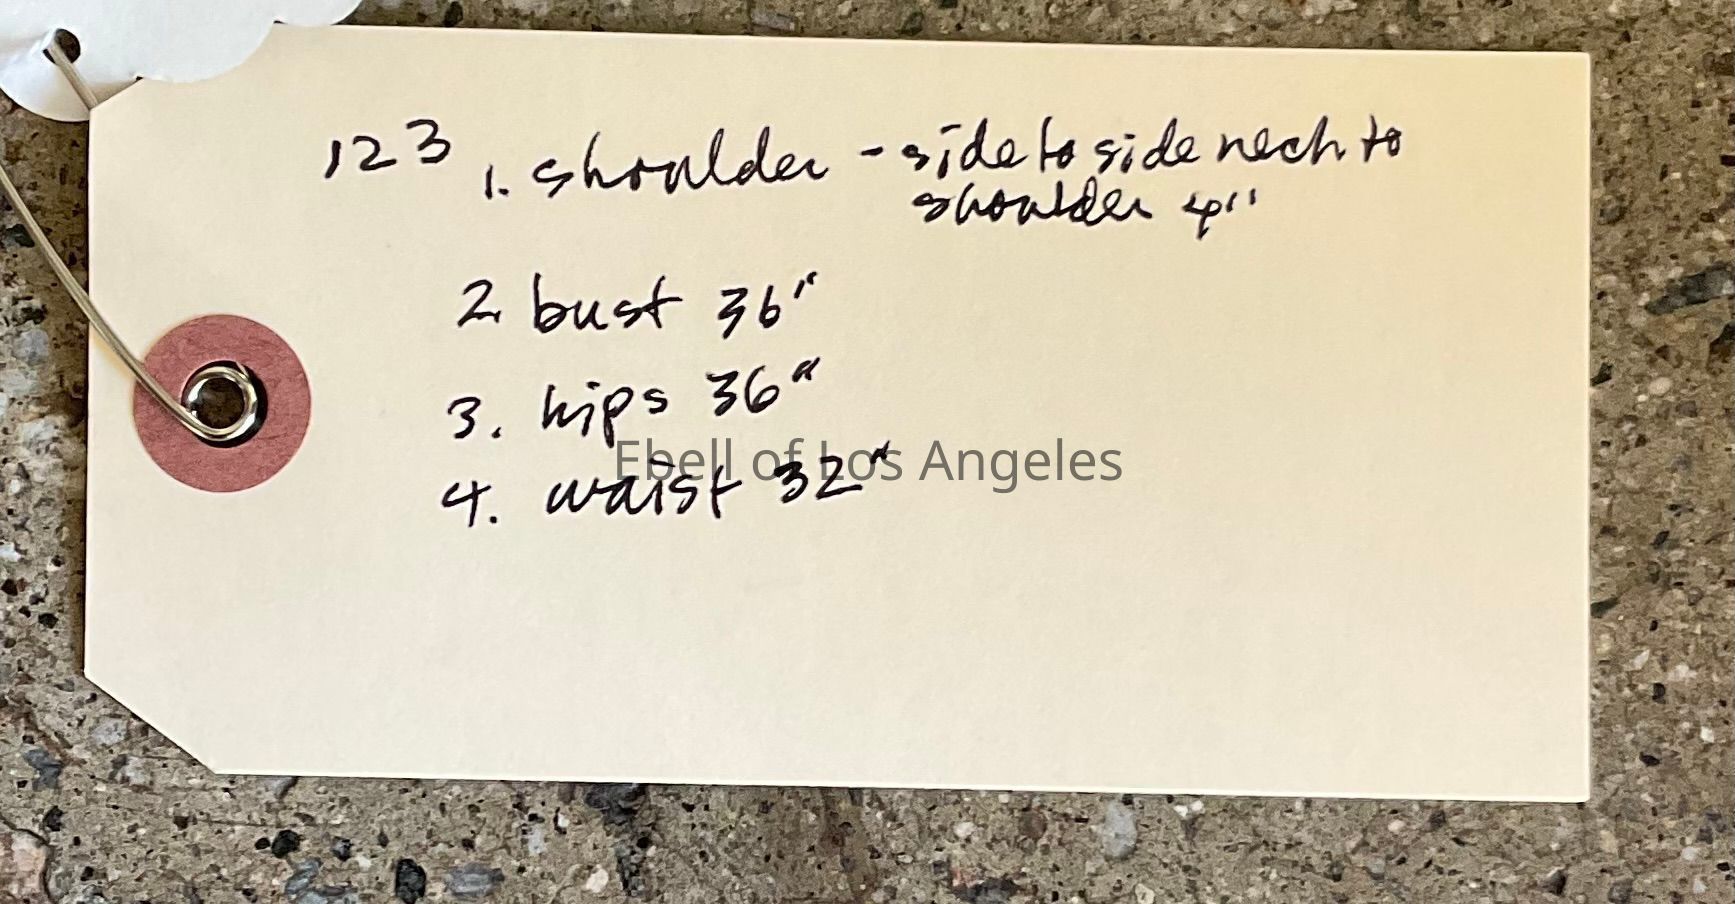 123 1. shoulder - side to side neck to
shoulder 4"
2. bust 36"
3. hips 36"
Ebell of Los Angeles
4. waist 32"